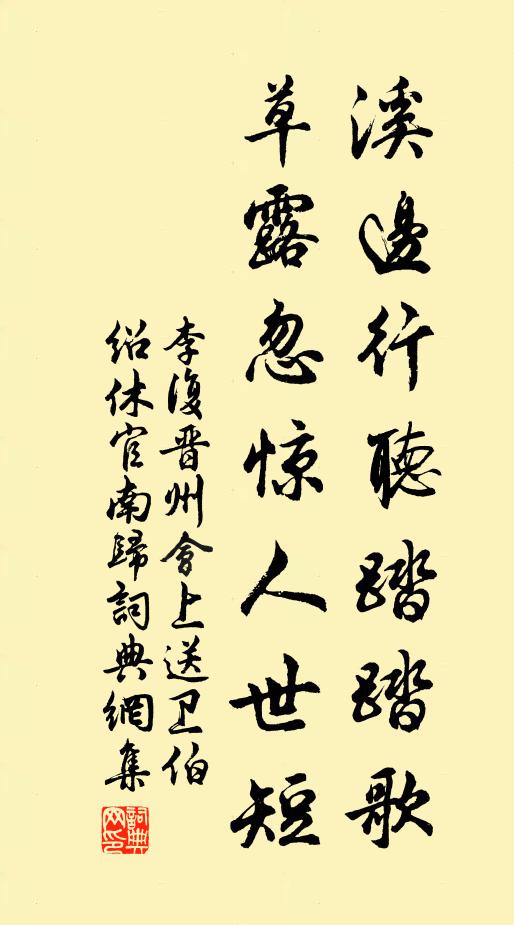 溪邊行聽踏踏歌
草露忽惊人世短
李復晋州會上送卫伯
紹休官南歸詞典網集
詞典网印